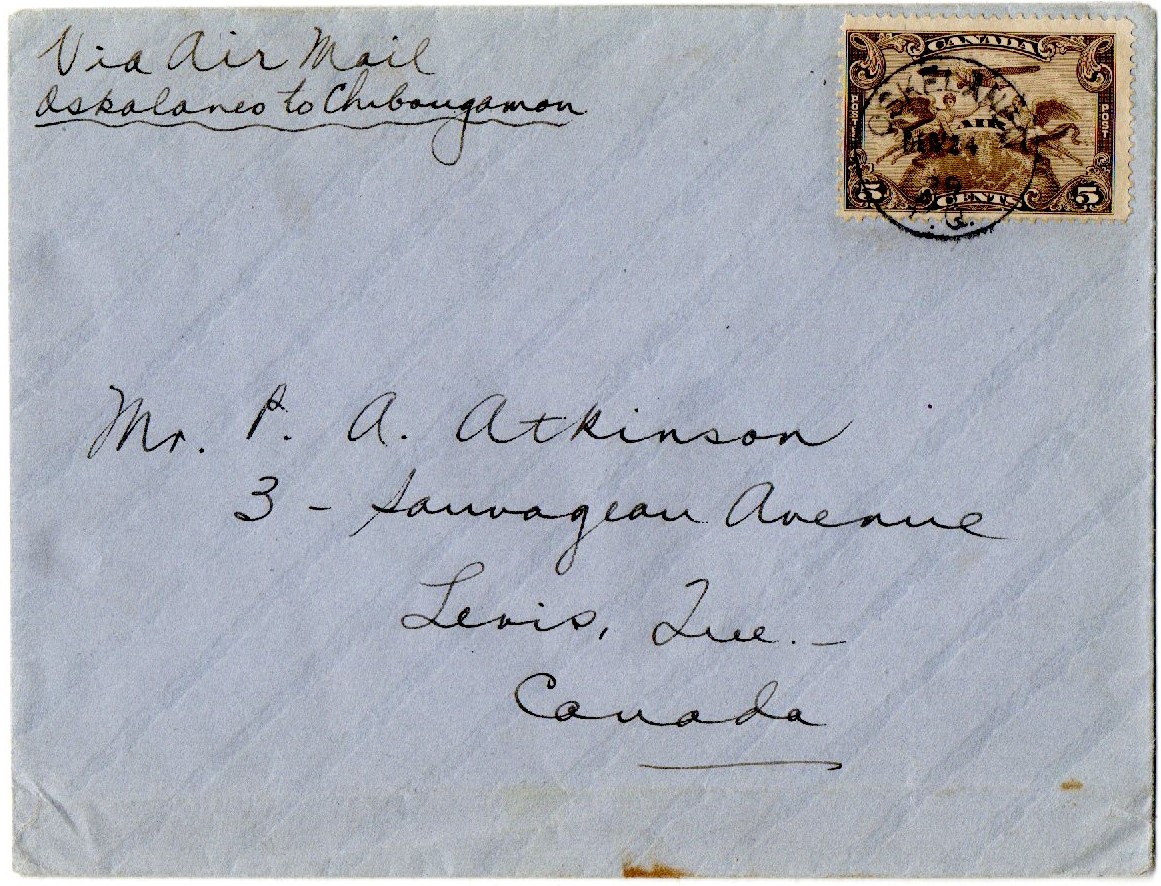 Via Air Mail
Oskalaneo to Chibougamon
CANADA
AIR
POSTE
POST
5 CENTS 5
24
P.Q.
Mr. P. A. Atkinson
3 - Sauvageau Avenue
Levis, Que. -
Canada